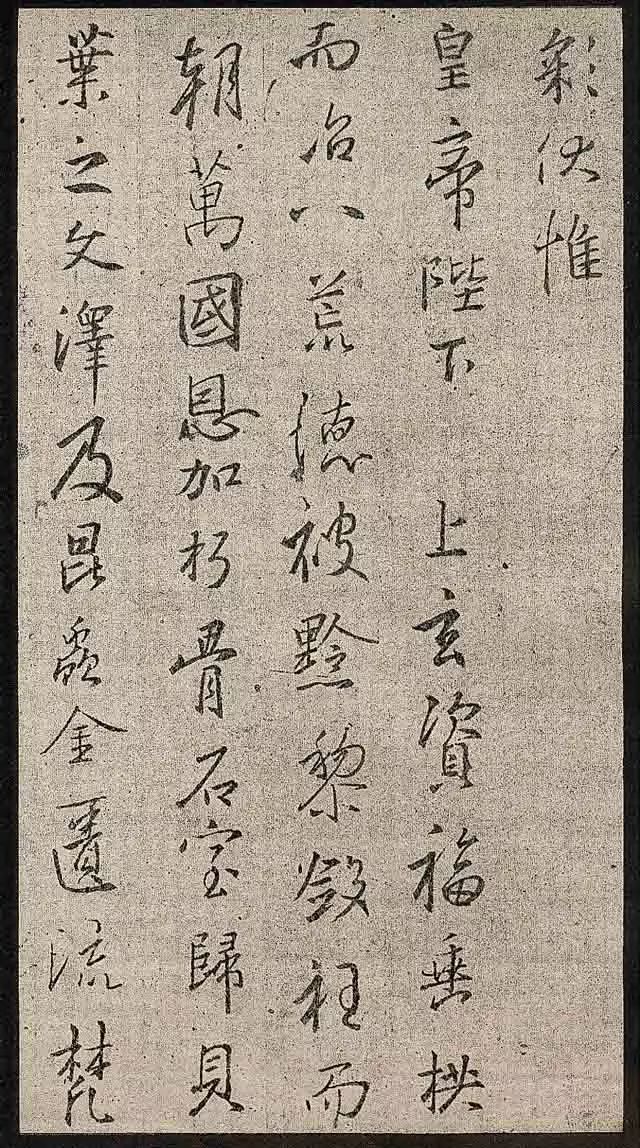 彩伏惟
皇帝陛下 上玄資福垂拱
而冶八荒德被黔黎斂衽而
朝萬國恩加朽骨石室歸貝
葉之文澤及昆蟲金匱流梵